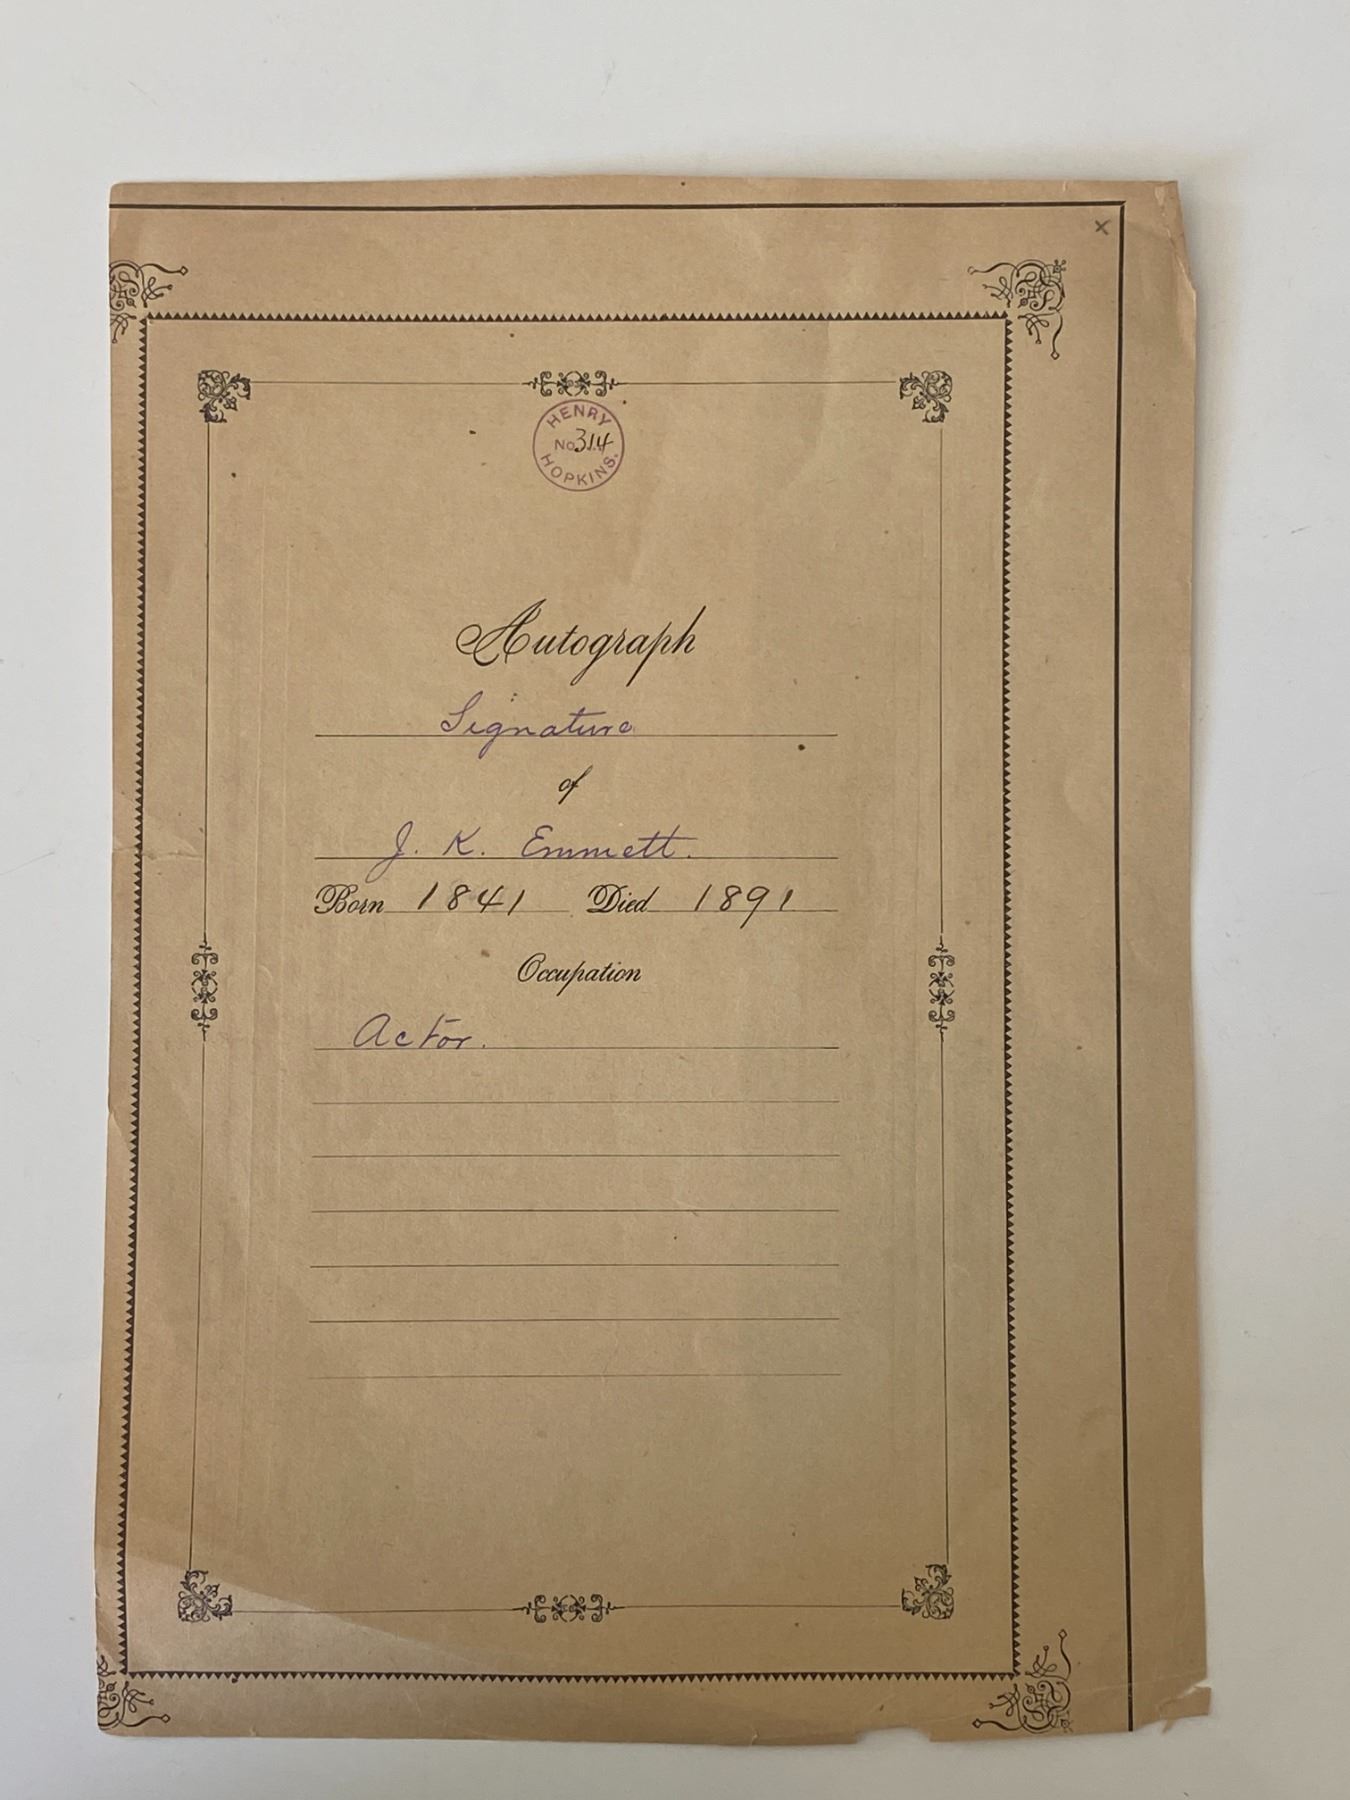 x
HENRY
No. 314
HOPKINS.
Autograph
Signature
of
J. K. Emmett.
Born 1841 Died 1891
Occupation
Actor.